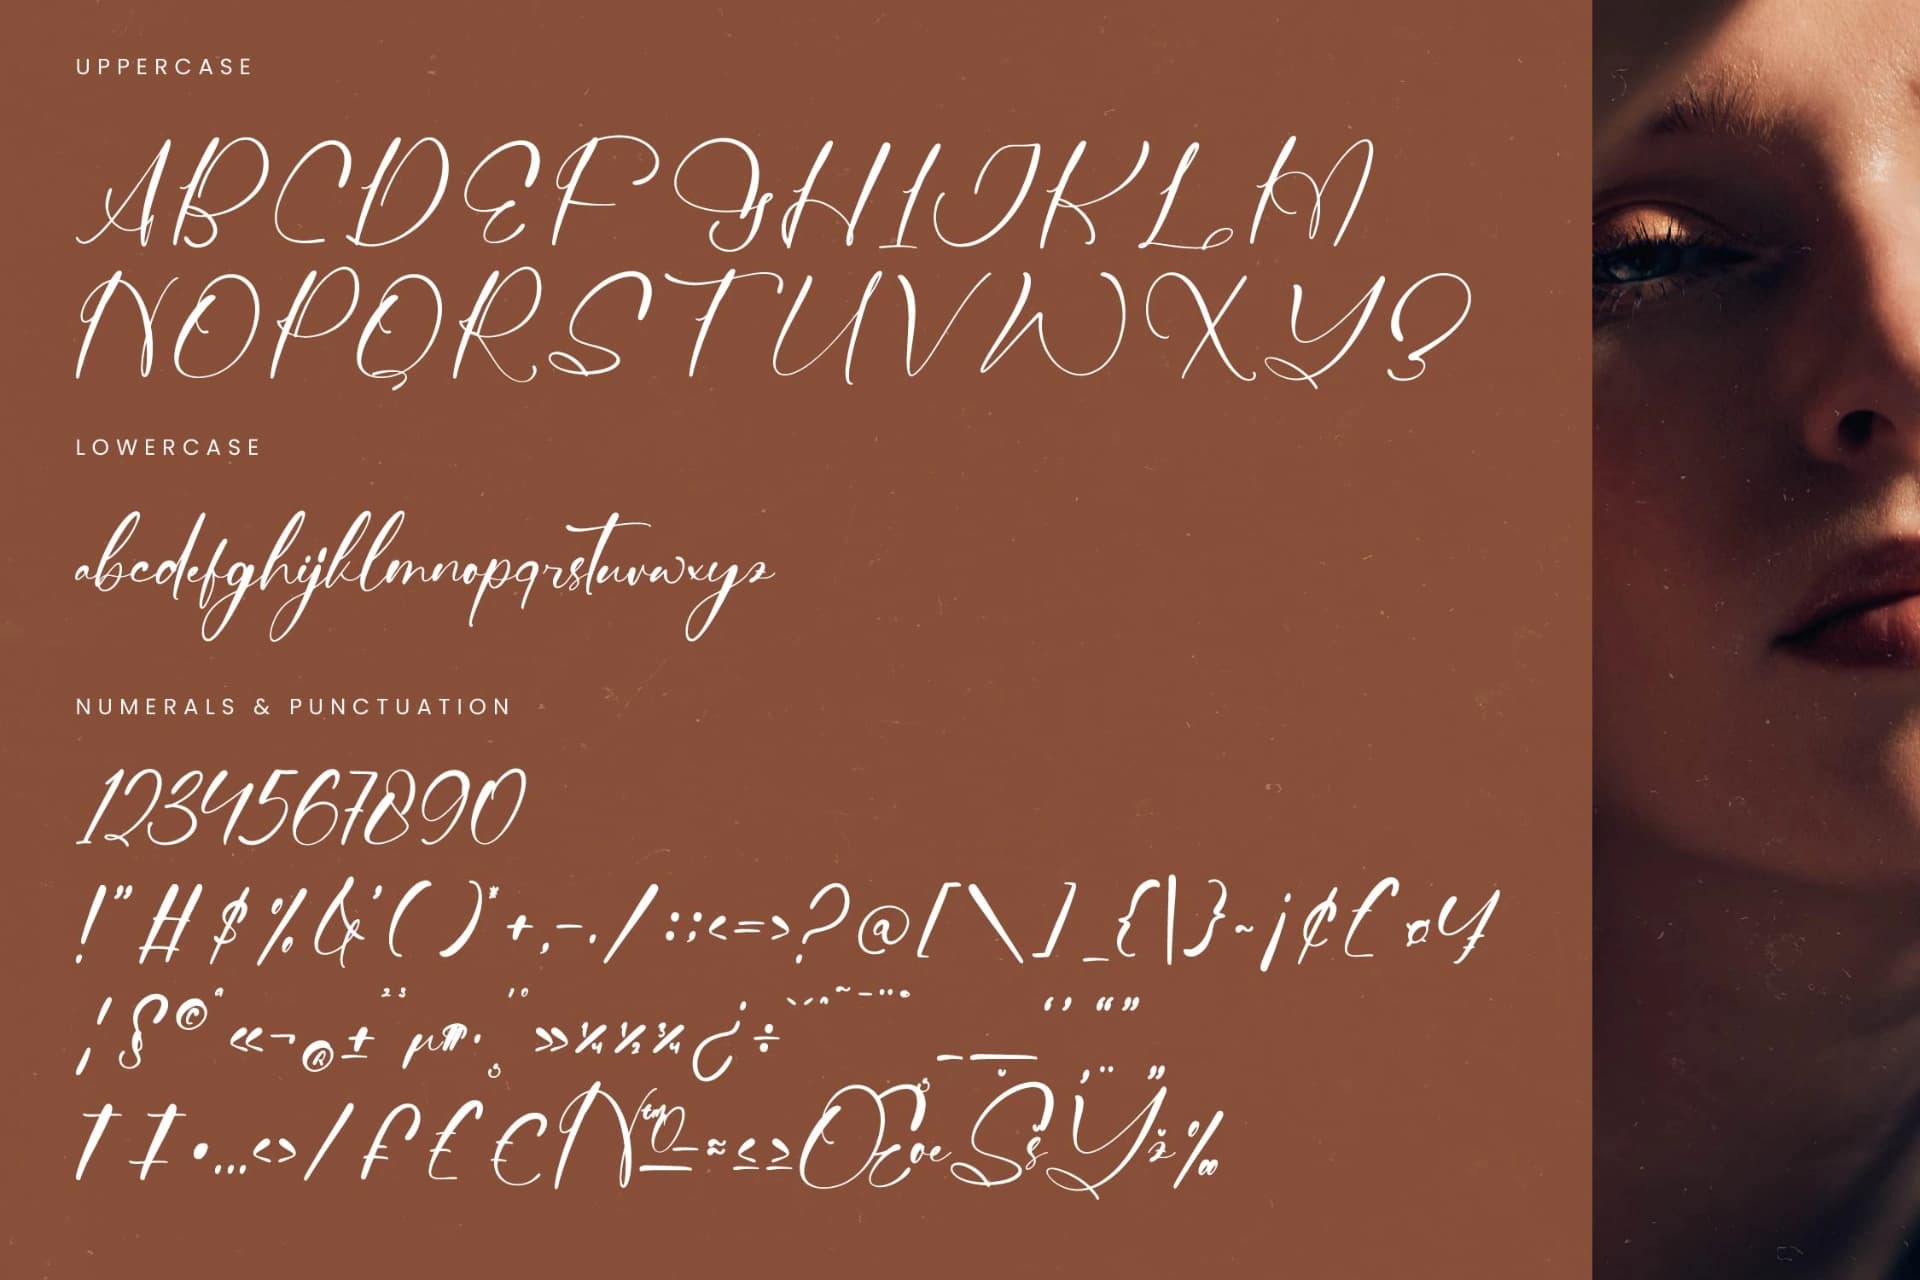 UPPERCASE
ABCDEFGHIJKLM
NOPQRSTUVWXYZ
LOWERCASE
abcdefghijklmnopqrstuvwxyz
NUMERALS & PUNCTUATION
1234567890
!"#$%&'()*+,-./:;<=>?@[\]_{|}~¡¢£¤¥
¦§©ª«¬®±²³µ¶·¸¹º»¼½¾¿÷`´ˆ˜¯¨˙‘’“”
†‡•…‹›/₣£€№™−≈≤≥ŒœŠšŸž‰